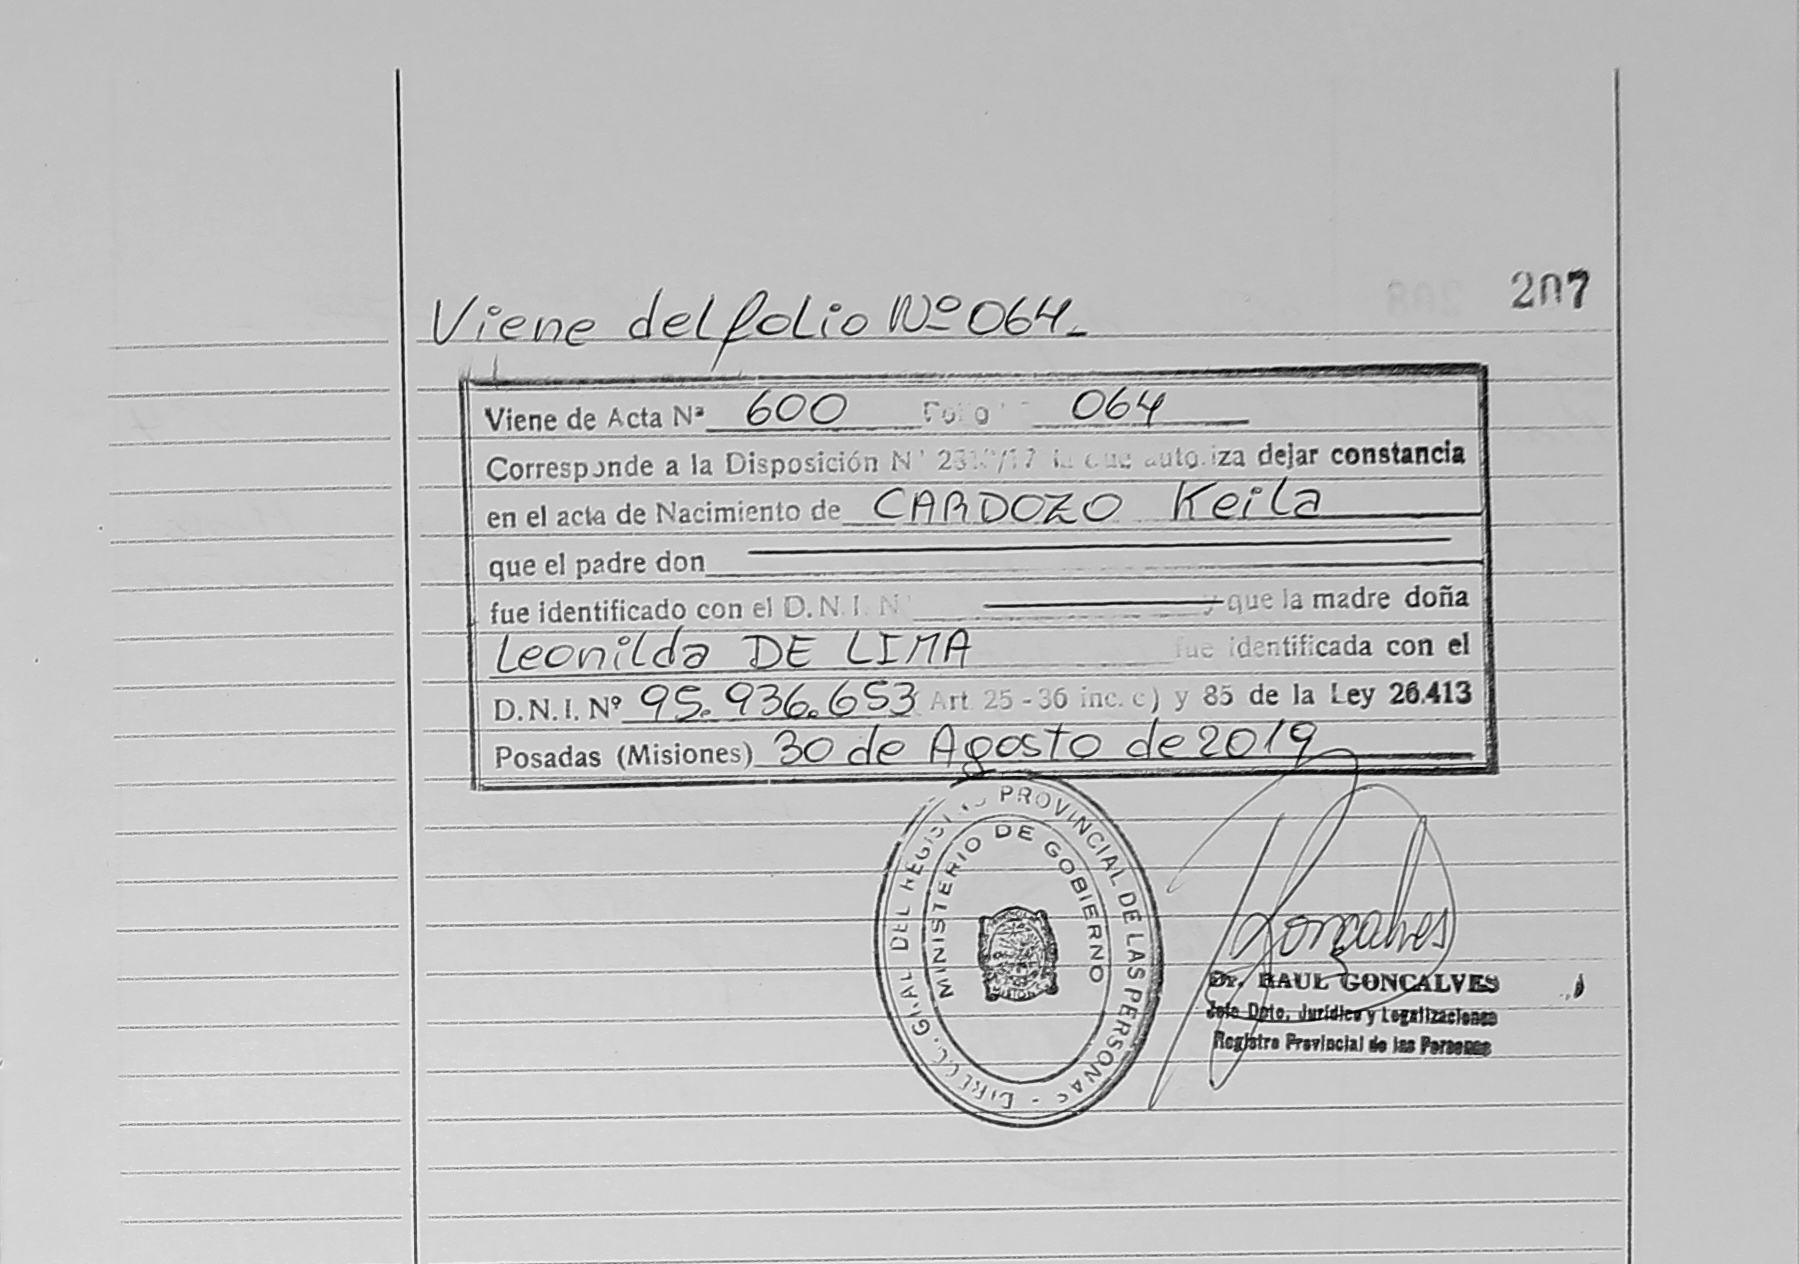 207
Viene del folio Nº 064_
Viene de Acta Nª 600 Folio 064
Corresponde a la Disposición N° que autoriza dejar constancia
en el acta de Nacimiento de CARDOZO Keila
que el padre don
fue identificado con el D.N.I. N° y que la madre doña
Leonilda DE LIMA fue identificada con el
D.N.I. Nº 95.936.653 Art. 25 - 36 inc. c) y 85 de la Ley 26.413
Posadas (Misiones) 30 de Agosto de 2019
DIRECC. GRAL DEL REGISTRO PROVINCIAL DE LAS PERSONAS -
MINISTERIO DE GOBIERNO
Gonçalves
Dr. RAUL GONCALVES
Jefe Dpto. Jurídico y Legalizaciones
Registro Provincial de las Personas